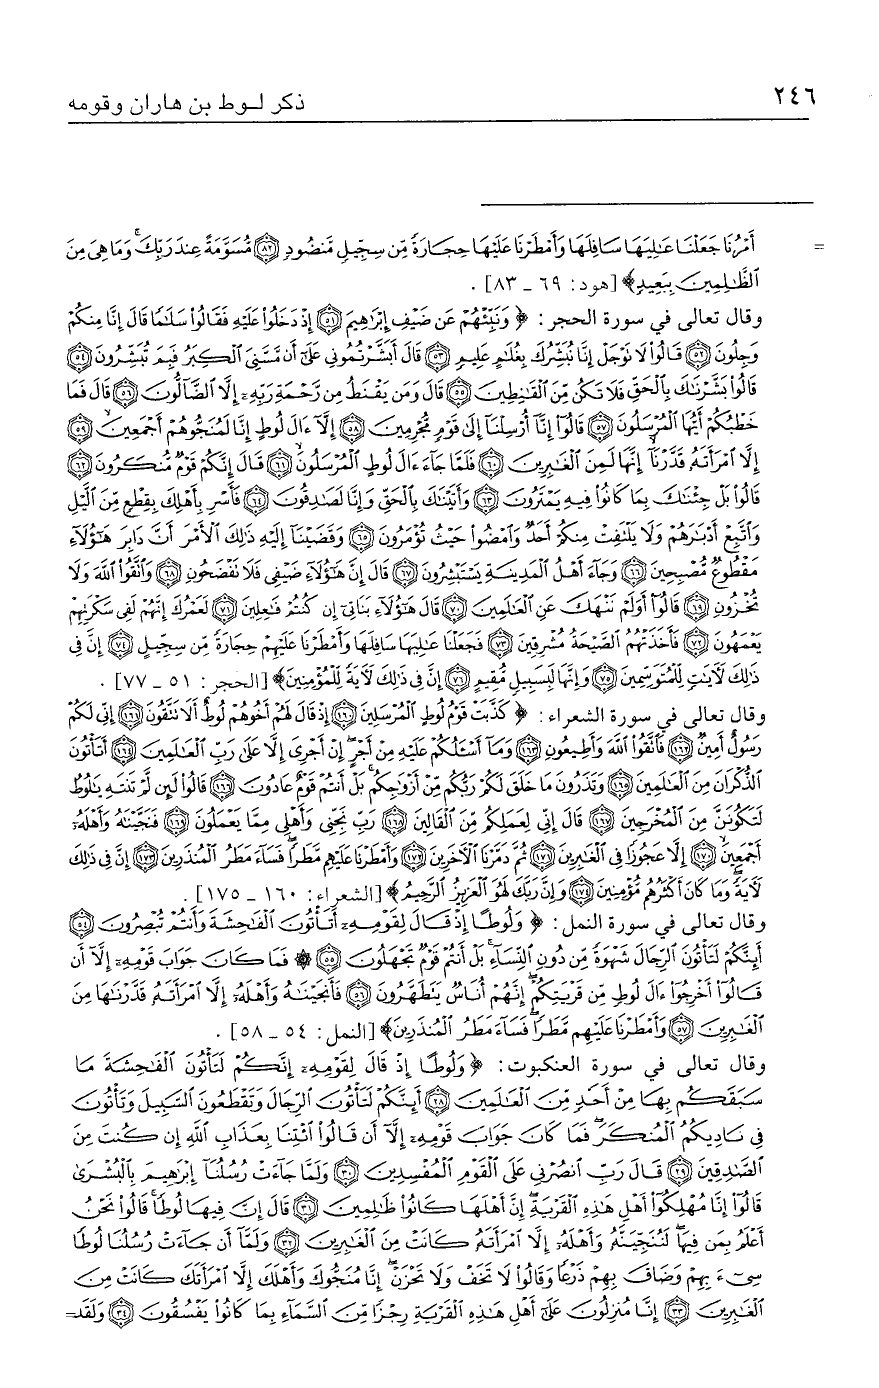 ٢٤٦
ذكر لـوط بن هاران وقومه
= أَمْرُنَا جَعَلْنَا عَٰلِيَهَا سَافِلَهَا وَأَمْطَرْنَا عَلَيْهَا حِجَارَةً مِّن سِجِّيلٍ مَّنضُودٍ ﴿٨٢﴾ مُّسَوَّمَةً عِندَ رَبِّكَ ۖ وَمَا هِىَ مِنَ
ٱلظَّٰلِمِينَ بِبَعِيدٍ﴾ [هود: ٦٩ ـ ٨٣] .
وقال تعالى في سورة الحجر: ﴿ وَنَبِّئْهُمْ عَن ضَيْفِ إِبْرَٰهِيمَ ﴿٥١﴾ إِذْ دَخَلُوا۟ عَلَيْهِ فَقَالُوا۟ سَلَٰمًا قَالَ إِنَّا مِنكُمْ
وَجِلُونَ ﴿٥٢﴾ قَالُوا۟ لَا نَوْجَلْ إِنَّا نُبَشِّرُكَ بِغُلَٰمٍ عَلِيمٍ ﴿٥٣﴾ قَالَ أَبَشَّرْتُمُونِى عَلَىٰٓ أَن مَّسَّنِىَ ٱلْكِبَرُ فَبِمَ تُبَشِّرُونَ ﴿٥٤﴾
قَالُوا۟ بَشَّرْنَٰكَ بِٱلْحَقِّ فَلَا تَكُن مِّنَ ٱلْقَٰنِطِينَ ﴿٥٥﴾ قَالَ وَمَن يَقْنَطُ مِن رَّحْمَةِ رَبِّهِۦٓ إِلَّا ٱلضَّآلُّونَ ﴿٥٦﴾ قَالَ فَمَا
خَطْبُكُمْ أَيُّهَا ٱلْمُرْسَلُونَ ﴿٥٧﴾ قَالُوٓا۟ إِنَّآ أُرْسِلْنَآ إِلَىٰ قَوْمٍ مُّجْرِمِينَ ﴿٥٨﴾ إِلَّآ ءَالَ لُوطٍ إِنَّا لَمُنَجُّوهُمْ أَجْمَعِينَ ﴿٥٩﴾
إِلَّا ٱمْرَأَتَهُۥ قَدَّرْنَآ ۙ إِنَّهَا لَمِنَ ٱلْغَٰبِرِينَ ﴿٦٠﴾ فَلَمَّا جَآءَ ءَالَ لُوطٍ ٱلْمُرْسَلُونَ ﴿٦١﴾ قَالَ إِنَّكُمْ قَوْمٌ مُّنكَرُونَ ﴿٦٢﴾
قَالُوا۟ بَلْ جِئْنَٰكَ بِمَا كَانُوا۟ فِيهِ يَمْتَرُونَ ﴿٦٣﴾ وَأَتَيْنَٰكَ بِٱلْحَقِّ وَإِنَّا لَصَٰدِقُونَ ﴿٦٤﴾ فَأَسْرِ بِأَهْلِكَ بِقِطْعٍ مِّنَ ٱلَّيْلِ
وَٱتَّبِعْ أَدْبَٰرَهُمْ وَلَا يَلْتَفِتْ مِنكُمْ أَحَدٌ وَٱمْضُوا۟ حَيْثُ تُؤْمَرُونَ ﴿٦٥﴾ وَقَضَيْنَآ إِلَيْهِ ذَٰلِكَ ٱلْأَمْرَ أَنَّ دَابِرَ هَٰٓؤُلَآءِ
مَقْطُوعٌ مُّصْبِحِينَ ﴿٦٦﴾ وَجَآءَ أَهْلُ ٱلْمَدِينَةِ يَسْتَبْشِرُونَ ﴿٦٧﴾ قَالَ إِنَّ هَٰٓؤُلَآءِ ضَيْفِى فَلَا تَفْضَحُونِ ﴿٦٨﴾ وَٱتَّقُوا۟ ٱللَّهَ وَلَا
تُخْزُونِ ﴿٦٩﴾ قَالُوٓا۟ أَوَلَمْ نَنْهَكَ عَنِ ٱلْعَٰلَمِينَ ﴿٧٠﴾ قَالَ هَٰٓؤُلَآءِ بَنَاتِىٓ إِن كُنتُمْ فَٰعِلِينَ ﴿٧١﴾ لَعَمْرُكَ إِنَّهُمْ لَفِى سَكْرَتِهِمْ
يَعْمَهُونَ ﴿٧٢﴾ فَأَخَذَتْهُمُ ٱلصَّيْحَةُ مُشْرِقِينَ ﴿٧٣﴾ فَجَعَلْنَا عَٰلِيَهَا سَافِلَهَا وَأَمْطَرْنَا عَلَيْهِمْ حِجَارَةً مِّن سِجِّيلٍ ﴿٧٤﴾ إِنَّ فِى
ذَٰلِكَ لَءَايَٰتٍ لِّلْمُتَوَسِّمِينَ ﴿٧٥﴾ وَإِنَّهَا لَبِسَبِيلٍ مُّقِيمٍ ﴿٧٦﴾ إِنَّ فِى ذَٰلِكَ لَءَايَةً لِّلْمُؤْمِنِينَ﴾ [الحجر: ٥١ ـ ٧٧] .
وقال تعالى في سورة الشعراء: ﴿ كَذَّبَتْ قَوْمُ لُوطٍ ٱلْمُرْسَلِينَ ﴿١٦٠﴾ إِذْ قَالَ لَهُمْ أَخُوهُمْ لُوطٌ أَلَا تَتَّقُونَ ﴿١٦١﴾ إِنِّى لَكُمْ
رَسُولٌ أَمِينٌ ﴿١٦٢﴾ فَٱتَّقُوا۟ ٱللَّهَ وَأَطِيعُونِ ﴿١٦٣﴾ وَمَآ أَسْـَٔلُكُمْ عَلَيْهِ مِنْ أَجْرٍ ۖ إِنْ أَجْرِىَ إِلَّا عَلَىٰ رَبِّ ٱلْعَٰلَمِينَ ﴿١٦٤﴾ أَتَأْتُونَ
ٱلذُّكْرَانَ مِنَ ٱلْعَٰلَمِينَ ﴿١٦٥﴾ وَتَذَرُونَ مَا خَلَقَ لَكُمْ رَبُّكُم مِّنْ أَزْوَٰجِكُم ۚ بَلْ أَنتُمْ قَوْمٌ عَادُونَ ﴿١٦٦﴾ قَالُوا۟ لَئِن لَّمْ تَنتَهِ يَٰلُوطُ
لَتَكُونَنَّ مِنَ ٱلْمُخْرَجِينَ ﴿١٦٧﴾ قَالَ إِنِّى لِعَمَلِكُم مِّنَ ٱلْقَالِينَ ﴿١٦٨﴾ رَبِّ نَجِّنِى وَأَهْلِى مِمَّا يَعْمَلُونَ ﴿١٦٩﴾ فَنَجَّيْنَٰهُ وَأَهْلَهُۥٓ
أَجْمَعِينَ ﴿١٧٠﴾ إِلَّا عَجُوزًا فِى ٱلْغَٰبِرِينَ ﴿١٧١﴾ ثُمَّ دَمَّرْنَا ٱلْءَاخَرِينَ ﴿١٧٢﴾ وَأَمْطَرْنَا عَلَيْهِم مَّطَرًا ۖ فَسَآءَ مَطَرُ ٱلْمُنذَرِينَ ﴿١٧٣﴾ إِنَّ فِى ذَٰلِكَ
لَءَايَةً ۖ وَمَا كَانَ أَكْثَرُهُم مُّؤْمِنِينَ ﴿١٧٤﴾ وَإِنَّ رَبَّكَ لَهُوَ ٱلْعَزِيزُ ٱلرَّحِيمُ﴾ [الشعراء: ١٦٠ ـ ١٧٥] .
وقال تعالى في سورة النمل: ﴿ وَلُوطًا إِذْ قَالَ لِقَوْمِهِۦٓ أَتَأْتُونَ ٱلْفَٰحِشَةَ وَأَنتُمْ تُبْصِرُونَ ﴿٥٤﴾
أَئِنَّكُمْ لَتَأْتُونَ ٱلرِّجَالَ شَهْوَةً مِّن دُونِ ٱلنِّسَآءِ ۚ بَلْ أَنتُمْ قَوْمٌ تَجْهَلُونَ ﴿٥٥﴾ ۞ فَمَا كَانَ جَوَابَ قَوْمِهِۦٓ إِلَّآ أَن
قَالُوٓا۟ أَخْرِجُوٓا۟ ءَالَ لُوطٍ مِّن قَرْيَتِكُمْ ۖ إِنَّهُمْ أُنَاسٌ يَتَطَهَّرُونَ ﴿٥٦﴾ فَأَنجَيْنَٰهُ وَأَهْلَهُۥٓ إِلَّا ٱمْرَأَتَهُۥ قَدَّرْنَٰهَا مِنَ
ٱلْغَٰبِرِينَ ﴿٥٧﴾ وَأَمْطَرْنَا عَلَيْهِم مَّطَرًا ۖ فَسَآءَ مَطَرُ ٱلْمُنذَرِينَ﴾ [النمل: ٥٤ ـ ٥٨] .
وقال تعالى في سورة العنكبوت: ﴿ وَلُوطًا إِذْ قَالَ لِقَوْمِهِۦٓ إِنَّكُمْ لَتَأْتُونَ ٱلْفَٰحِشَةَ مَا
سَبَقَكُم بِهَا مِنْ أَحَدٍ مِّنَ ٱلْعَٰلَمِينَ ﴿٢٨﴾ أَئِنَّكُمْ لَتَأْتُونَ ٱلرِّجَالَ وَتَقْطَعُونَ ٱلسَّبِيلَ وَتَأْتُونَ
فِى نَادِيكُمُ ٱلْمُنكَرَ ۖ فَمَا كَانَ جَوَابَ قَوْمِهِۦٓ إِلَّآ أَن قَالُوا۟ ٱئْتِنَا بِعَذَابِ ٱللَّهِ إِن كُنتَ مِنَ
ٱلصَّٰدِقِينَ ﴿٢٩﴾ قَالَ رَبِّ ٱنصُرْنِى عَلَى ٱلْقَوْمِ ٱلْمُفْسِدِينَ ﴿٣٠﴾ وَلَمَّا جَآءَتْ رُسُلُنَآ إِبْرَٰهِيمَ بِٱلْبُشْرَىٰ
قَالُوٓا۟ إِنَّا مُهْلِكُوٓا۟ أَهْلِ هَٰذِهِ ٱلْقَرْيَةِ ۖ إِنَّ أَهْلَهَا كَانُوا۟ ظَٰلِمِينَ ﴿٣١﴾ قَالَ إِنَّ فِيهَا لُوطًا ۚ قَالُوا۟ نَحْنُ
أَعْلَمُ بِمَن فِيهَا ۖ لَنُنَجِّيَنَّهُۥ وَأَهْلَهُۥٓ إِلَّا ٱمْرَأَتَهُۥ كَانَتْ مِنَ ٱلْغَٰبِرِينَ ﴿٣٢﴾ وَلَمَّآ أَن جَآءَتْ رُسُلُنَا لُوطًا
سِىٓءَ بِهِمْ وَضَاقَ بِهِمْ ذَرْعًا وَقَالُوا۟ لَا تَخَفْ وَلَا تَحْزَنْ ۖ إِنَّا مُنَجُّوكَ وَأَهْلَكَ إِلَّا ٱمْرَأَتَكَ كَانَتْ مِنَ
ٱلْغَٰبِرِينَ ﴿٣٣﴾ إِنَّا مُنزِلُونَ عَلَىٰٓ أَهْلِ هَٰذِهِ ٱلْقَرْيَةِ رِجْزًا مِّنَ ٱلسَّمَآءِ بِمَا كَانُوا۟ يَفْسُقُونَ ﴿٣٤﴾ وَلَقَد=